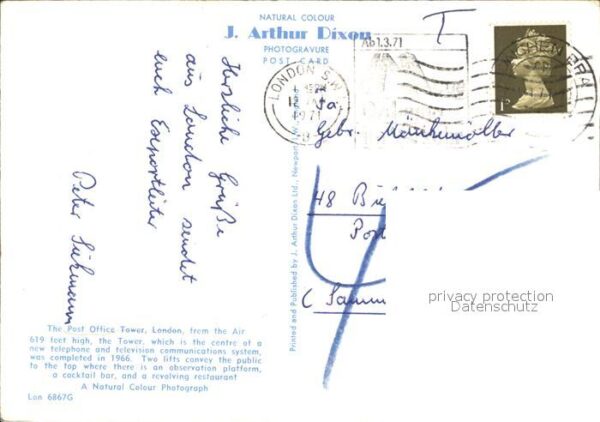 NATURAL COLOUR
J. Arthur Dixon
PHOTOGRAVURE
POST CARD
T
Ab 1.3.71
LONDON S.W.
12
1971
1P
Herzliche Grüße
aus London sendet
euch Exportleiter
Peter
Fa.
Gebr.
48 Bie
Post
( Samm
Printed and Published by J. Arthur Dixon Ltd., Newport
privacy protection
Datenschutz
The Post Office Tower, London, from the Air
619 feet high, the Tower, which is the centre of a
new telephone and television communications system,
was completed in 1966. Two lifts convey the public
to the top where there is an observation platform,
a cocktail bar, and a revolving restaurant
A Natural Colour Photograph
Lon 6867G